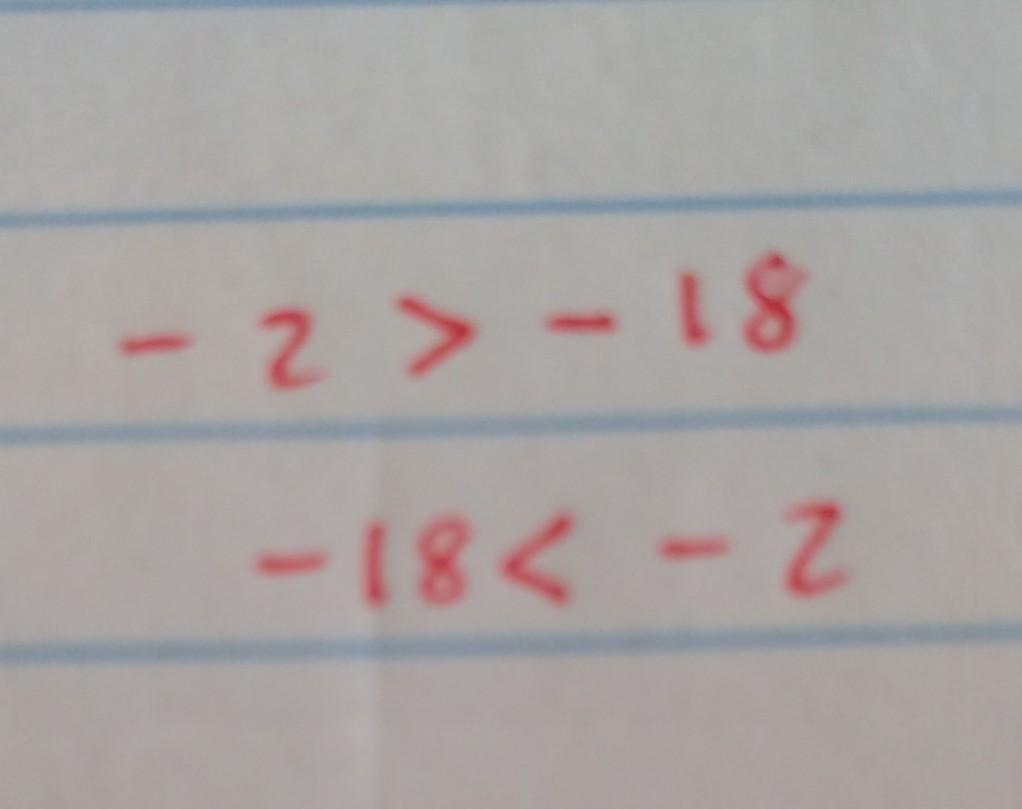 - 2 > - 18
- 18 < - 2